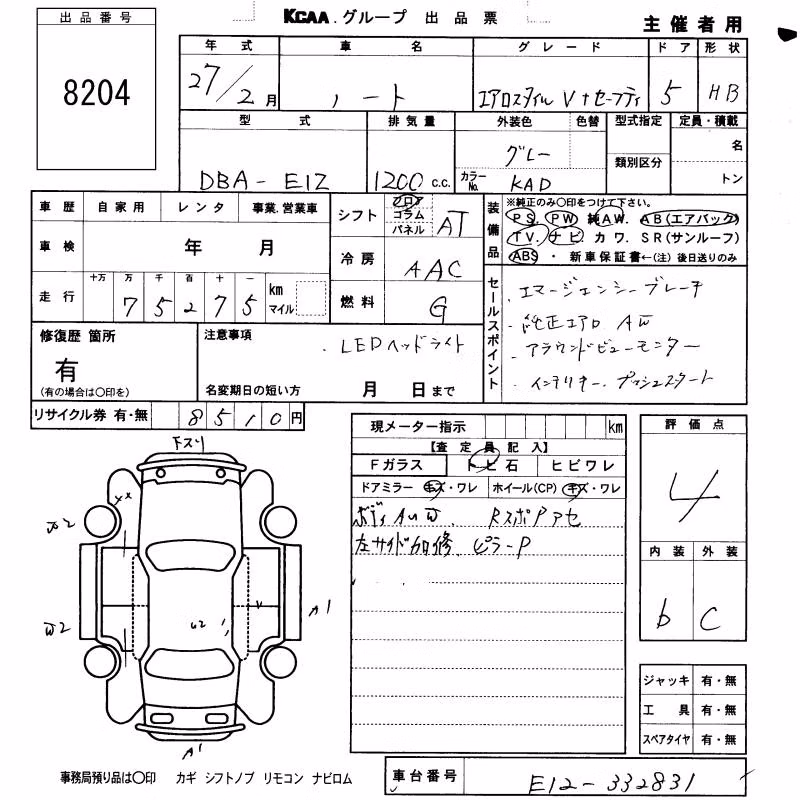 出品番号
8204
KCAA.グループ 出品票
主催者用
年式 車名 グレード ドア 形状
27/2月 ノート エアロスタイル V+セーフティ 5 HB
型式 排気量 外装色 色替 型式指定 定員・積載
DBA-E12 1200 C.C. グレー 名
カラーNo. KAD 類別区分 トン
車歴 自家用 レンタ 事業.営業車
車検 年 月
走行 十万 万 千 百 十 一
7 5 2 7 5 km マイル
シフト フロア コラム パネル AT
冷房 AAC
燃料 G
装備品
※純正のみ〇印をつけて下さい。
PS. PW. 純AW. AB(エアバック)
TV. ナビ. カワ. SR(サンルーフ)
ABS ・ 新車保証書←(注)後日送りのみ
セールスポイント
・エマージェンシーブレーキ
・純正エアロ AW
・アラウンドビューモニター
・インテリキー プッシュスタート
修復歴 箇所
有
(有の場合は〇印を)
注意事項
・LEDヘッドライト
名変期日の短い方 月 日まで
リサイクル券 有・無 8510円
現メーター指示 km
【査定員記入】
Fガラス トビ石 ヒビワレ
ドアミラー キズ・ワレ ホイール(CP) キズ・ワレ
ボディAUW. RスポPアセ
左サイド加修 ピラーP
評価点
4
内装 外装
b C
ジャッキ 有・無
工具 有・無
スペアタイヤ 有・無
下スリ
XX
W2
W2
U2
A1
A1
事務局預り品は〇印 カギ シフトノブ リモコン ナビロム
車台番号 E12-332831